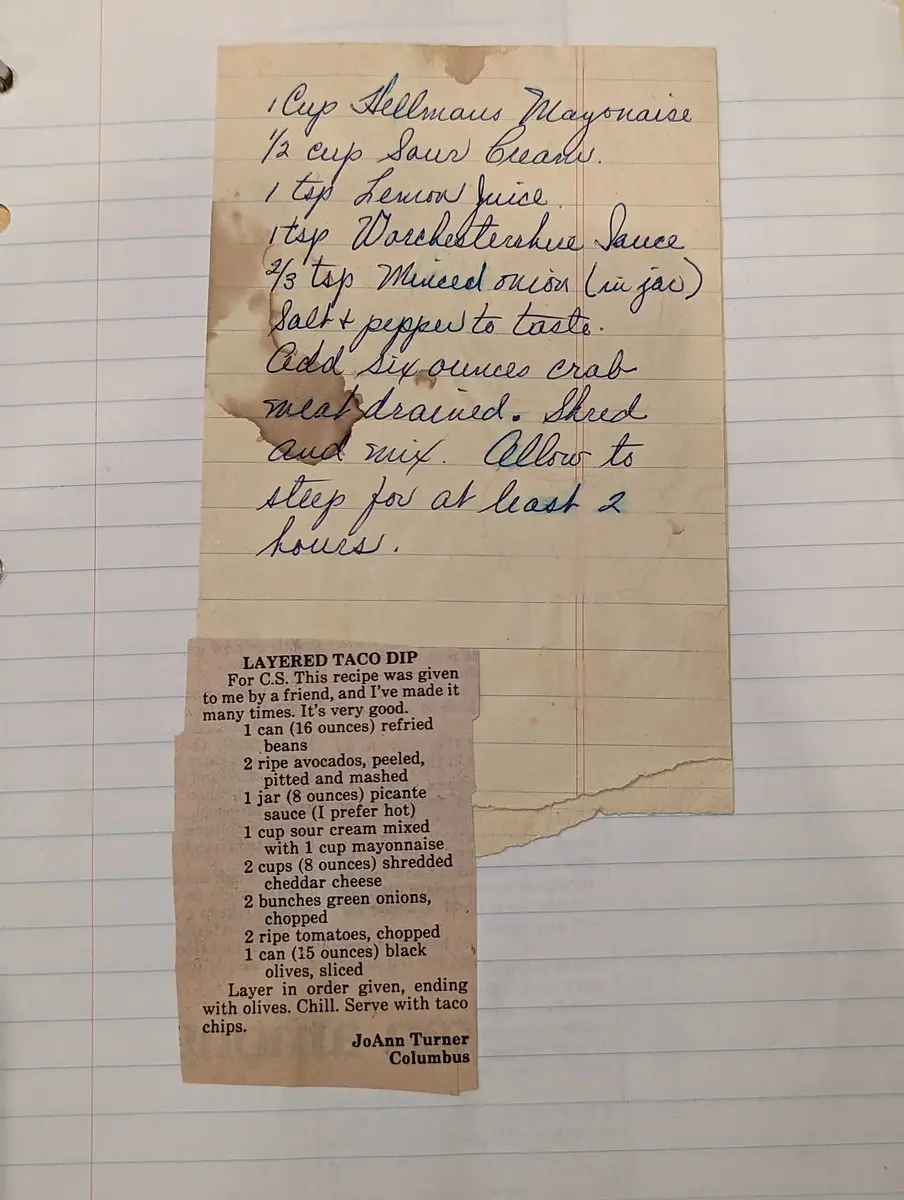 1 Cup Hellmans Mayonaise
1/2 cup Sour Cream.
1 tsp Lemon Juice.
1 tsp Worchestershire Sauce
2/3 tsp Minced onion (in jar)
Salt + pepper to taste.
Add six ounces crab
meat drained. Shred
and mix. Allow to
steep for at least 2
hours.
LAYERED TACO DIP
For C.S. This recipe was given
to me by a friend, and I've made it
many times. It's very good.
1 can (16 ounces) refried
beans
2 ripe avocados, peeled,
pitted and mashed
1 jar (8 ounces) picante
sauce (I prefer hot)
1 cup sour cream mixed
with 1 cup mayonnaise
2 cups (8 ounces) shredded
cheddar cheese
2 bunches green onions,
chopped
2 ripe tomatoes, chopped
1 can (15 ounces) black
olives, sliced
Layer in order given, ending
with olives. Chill. Serve with taco
chips.
JoAnn Turner
Columbus